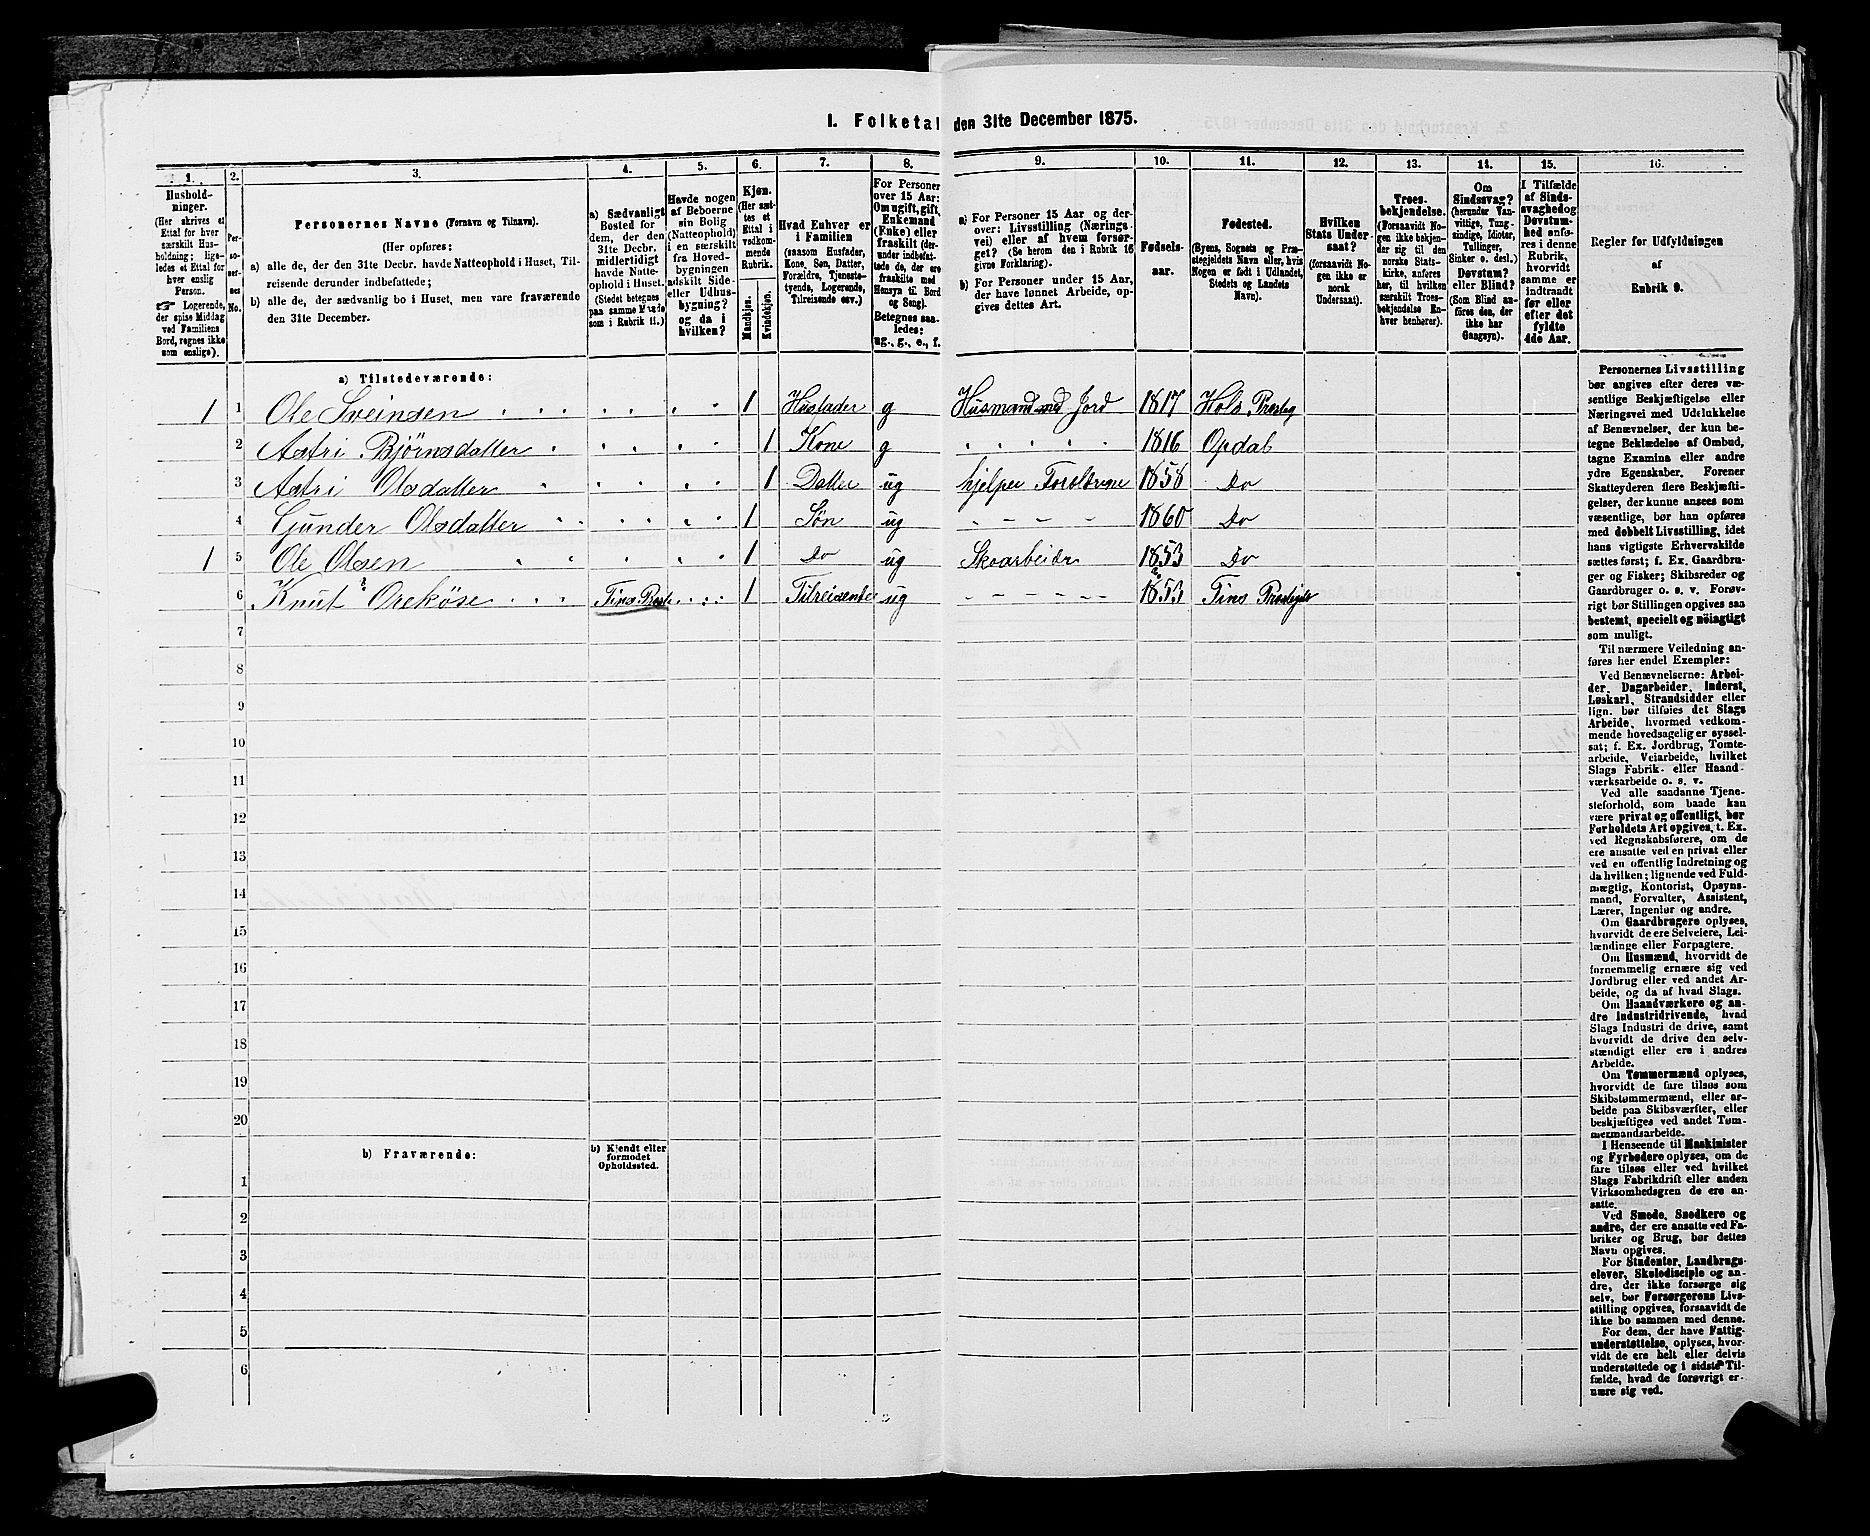 I. Folketal den 31te December 1875.
1. 2. 3. 4. 5. 6. 7. 8. 9. 10. 11. 12. 13. 14. 15. 16.
Hushold-
ninger.
(Her skrives et
Ettal for hver
særskilt Hus-
holdning; lige-
ledes et Ettal for
hver enslig
Person.
☞ Logerende,
der spise Middag
ved Familiens
Bord, regnes ikke
som enslige).
Per-
soner-
nes
No.
Personernes Navne (Fornavn og Tilnavn).
(Her opføres:
a) alle de, der den 31te Decbr. havde Natteophold i Huset, Til-
reisende derunder indbefattede;
b) alle de, der sædvanlig bo i Huset, men vare fraværende
den 31te December.
a) Sædvanligt
Bosted for
dem, der den
31te Decbr.
midlertidigt
havde Natte-
ophold i Huset.
(Stedet betegnes
paa samme Maade
som i Rubrik 11.)
Havde nogen
af Beboerne
sin Bolig
(Natteophold)
i en særskilt
fra Hoved-
bygningen
adskilt Side-
eller Udhus-
bygning?
og da i
hvilken?
Kjøn.
(Her sæt-
tes et
Ettal i
vedkom-
mende
Rubrik.
Mandkjøn.
Kvindekjøn.
Hvad Enhver er
i Familien
(saasom Husfader,
Kone, Søn, Datter,
Forældre, Tjeneste-
tyende, Logerende,
Tilreisende osv.)
For Personer
over 15 Aar:
Om ugift, gift,
Enkemand
(Enke) eller
fraskilt (der-
under indbefat-
tede de, der ere
fraskilte med
Hensyn til Bord
og Seng).
Betegnes saa-
ledes:
ug., g., e., f.
a) For Personer 15 Aar og der-
over: Livsstilling (Nærings-
vei) eller af hvem forsør-
get? (Se herom den i Rubrik 16
givne Forklaring).
b) For Personer under 15 Aar,
der have lønnet Arbeide, op-
gives dettes Art.
Fødsels-
aar.
Fødested.
(Byens, Sognets og Præ-
stegjeldets Navn eller, hvis
Nogen er født i Udlandet,
Stedets og Landets
Navn).
Hvilken
Stats Under-
saat?
(forsaavidt No-
gen ikke er
norsk
Undersaat).
Troes-
bekjendelse.
(Forsaavidt No-
gen ikke bekjen-
der sig til den
norske Stats-
kirke, anføres
her, til hvilken
særskilt Troes-
bekjendelse En-
hver henhører).
Om
Sindssvag?
(herunder Van-
vittige, Tung-
sindige, Idioter,
Tullinger,
Sinker o. desl.)
Døvstum?
eller Blind?
(Som Blind an-
føres den, der
ikke har
Gangsyn).
I Tilfælde
af Sinds-
svaghed og
Døvstum-
hed anfø-
res i denne
Rubrik,
hvorvidt
samme er
indtraadt
før eller
efter det
fyldte
4de Aar.
Regler for Udfyldningen
af
Rubrik 9.
a) Tilstedeværende:
1 1 Ole Sveinsen 1 Husfader g Husmand med Jord 1817 Hols Prestg
2 Astri Bjørnsdatter 1 Kone g 1816 Opdal
3 Astri Olsdatter 1 Datter ug hjelper Forældrene 1858 Do
4 Gunder Olsdatter 1 Søn ug 1860 Do
1 5 Ole Olsen 1 Do ug Skoarbeider 1853 Do
6 Knut Orekøse 1 Tilreisende ug 1853 Tins
7
8
9
10
11
12
13
14
15
16
17
18
19
20
b) Fraværende:
b) Kjendt eller
formodet
Opholdssted.
1
2
3
4
5
6
Personernes Livsstilling
bør angives efter deres væ-
sentlige Beskjæftigelse eller
Næringsvei med Udelukkelse
af Benævnelser, der kun be-
tegne Beklædelse af Ombud,
tagne Examina eller andre
ydre Egenskaber. Forener
Skatteyderen flere Beskjæfti-
gelser, der kunne ansees som
væsentlige, bør han opføres
med dobbelt Livsstilling, idet
hans vigtigste Erhvervskilde
sættes først; f. Ex. Gaardbru-
ger og Fisker; Skibsreder og
Gaardbruger o. s. v. Forøv-
rigt bør Stillingen opgives saa
bestemt, specielt og nøiagtigt
som muligt.
Til nærmere Veiledning an-
føres her endel Exempler:
Ved Benævnelserne: Arbei-
der, Dagarbeider, Inderst,
Løskarl, Strandsidder eller
lign. bør tilføies det Slags
Arbeide, hvormed vedkom-
mende hovedsagelig er syssel-
sat; f. Ex. Jordbrug, Tomte-
arbeide, Veiarbeide, hvilket
Slags Fabrik- eller Haand-
værksarbeide o. s. v.
Ved alle saadanne Tjene-
steforhold, som baade kan
være privat og offentligt, bør
Forholdets Art opgives, t. Ex.
ved Regnskabsførere, om de
ere ansatte ved en privat eller
ved en offentlig Indretning og
da hvilken; lignende ved Fuld-
mægtig, Kontorist, Opsyns-
mand, Forvalter, Assistent,
Lærer, Ingeniør og andre.
Om Gaardbrugere oplyses,
hvorvidt de ere Selveiere, Lei-
lændinge eller Forpagtere.
Om Husmænd, hvorvidt de
fornemmelig ernære sig ved
Jordbrug eller ved andet Ar-
beide, og da af hvad Slags.
Om Haandværkere og an-
dre Industridrivende, hvad
Slags Industri de drive, samt
hvorvidt de drive den selv-
stændigt eller ere i andres
Arbeide.
Om Tømmermænd oplyses,
hvorvidt de fare tilsøs som
Skibstømmermænd, eller ar-
beide paa Skibsværfter, eller
beskjæftiges ved andet Tøm-
mermandsarbeide.
I Henseende til Maskinister
og Fyrbødere oplyses, om de
fare tilsøs eller ved hvilket
Slags Fabrikdrift eller anden
Virksomhedsgren de ere an-
satte.
Ved Smede, Snedkere og
andre, der ere ansatte ved Fa-
briker og Brug, bør dettes
Navn opgives.
For Studenter, Landbrugs-
elever, Skoledisciple og an-
dre, der ikke forsørge sig
selv, bør Forsørgerens Livs-
stilling opgives, forsaavidt de
ikke bo sammen med denne.
For dem, der have Fattig-
understøttelse, oplyses, hvor-
vidt de ere helt eller delvis
understøttede og i sidste Til-
fælde, hvad de forøvrigt er-
nære sig ved.